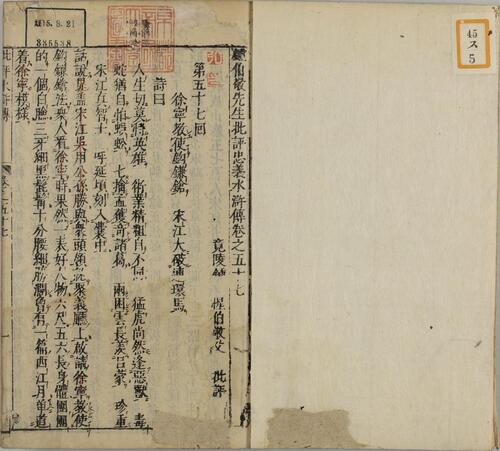 45
ス
5
鍾伯敬先生批評忠義水滸傳卷之五十七
竟陵鍾 惺伯敬父 批評
第五十七回
徐寧教使鉤鎌鎗 宋江大破連環馬
詩曰
人生切莫恃英雄 術業精粗自不同 猛虎尚然逢惡獸 毒
蛇猶自怕蜈蚣 七擒孟獲奇諸葛 兩困雲長羨呂蒙 珍重
宋江真智士 呼延頃刻入囊中
話說晁盖宋江吳用公孫勝與衆頭領就聚義廳上啟請徐寧教使
鉤鎌鎗法衆人看徐寧時果然一表好人物六尺五六長身體團團
的一個白臉三牙細黑髭髯十分腰細膀濶曾有一篇西江月單道
着徐寧模樣
批評水滸傳 卷之五十七
15.8.21
335538